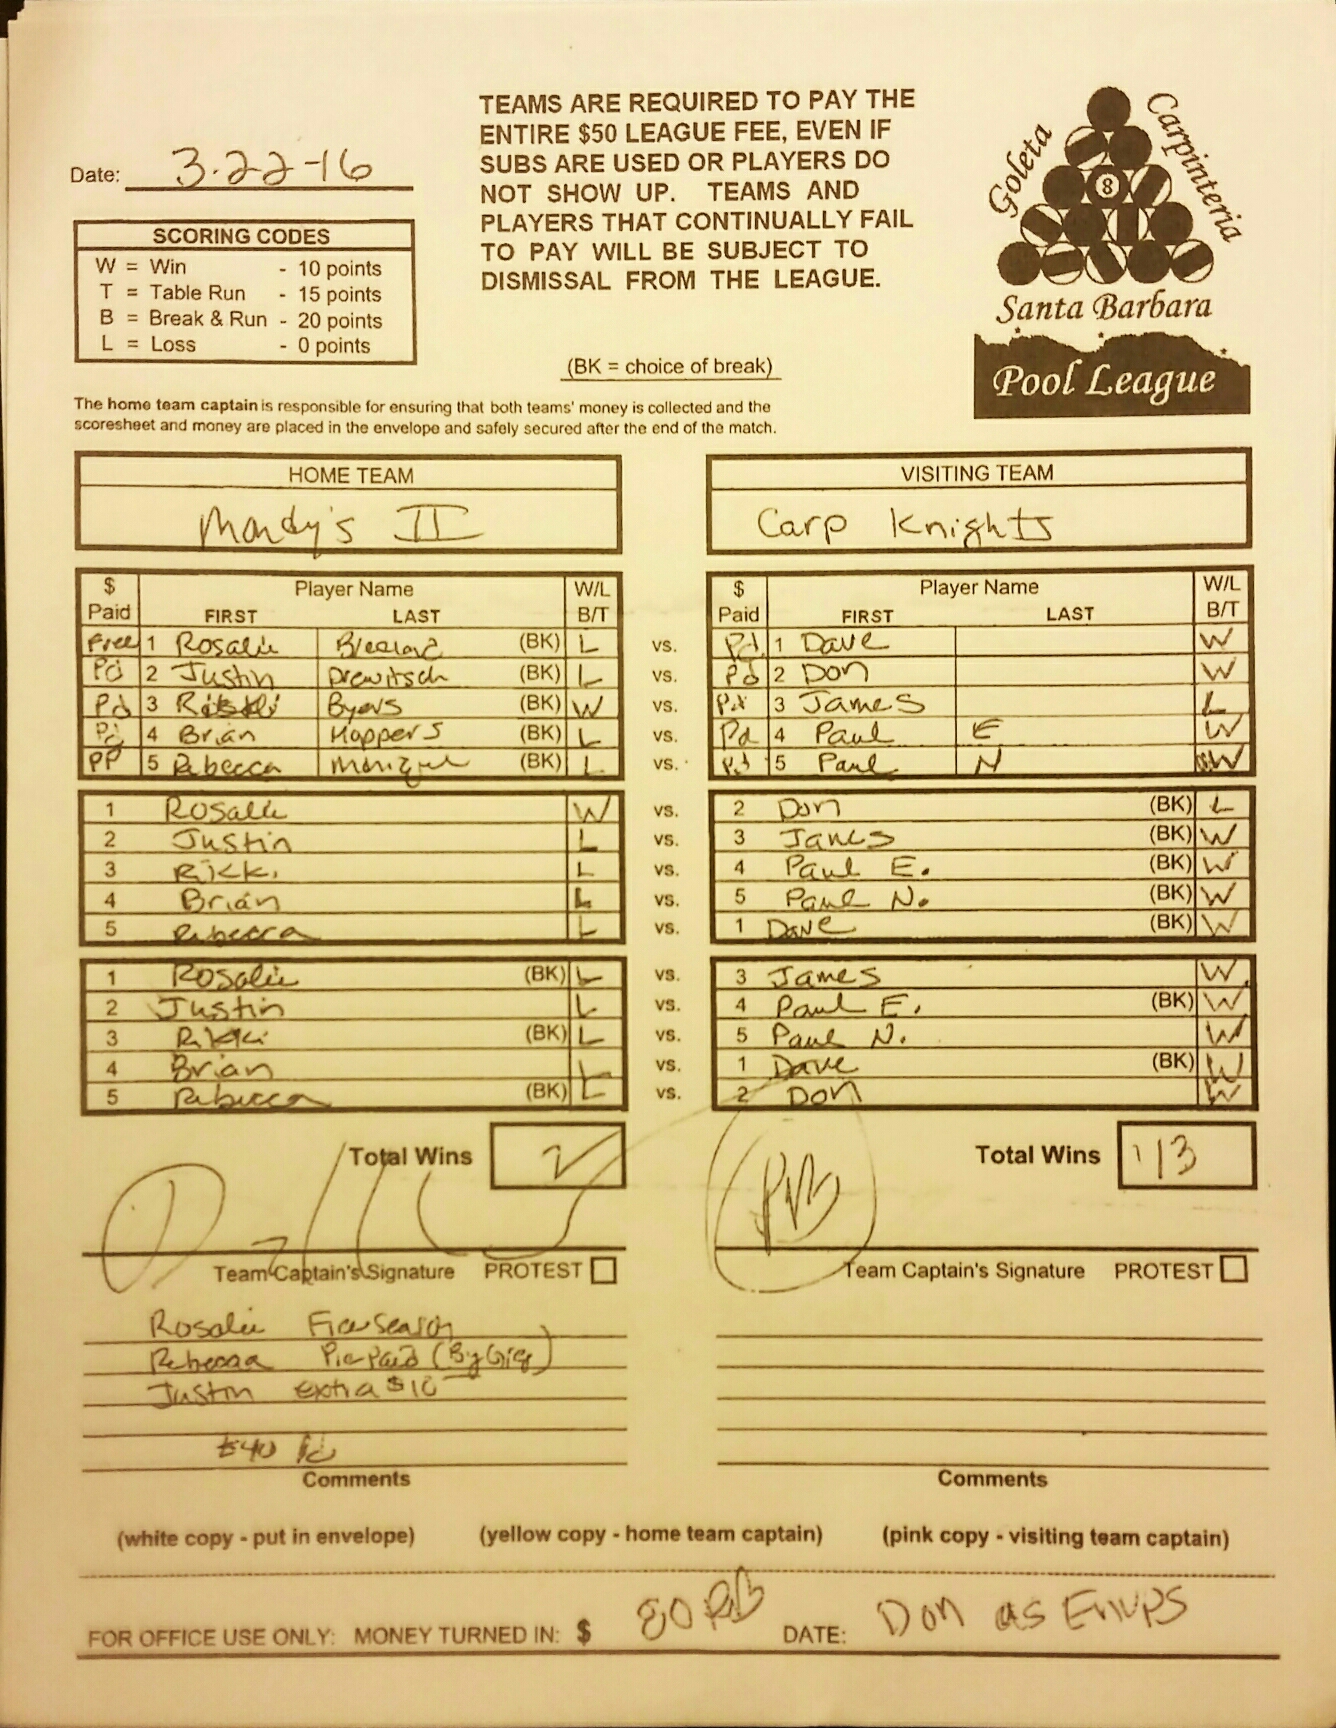 TEAMS ARE REQUIRED TO PAY THE
ENTIRE $50 LEAGUE FEE, EVEN IF
SUBS ARE USED OR PLAYERS DO
NOT SHOW UP. TEAMS AND
PLAYERS THAT CONTINUALLY FAIL
TO PAY WILL BE SUBJECT TO
DISMISSAL FROM THE LEAGUE.
Goleta
Carpinteria
8
Santa Barbara
Pool League
Date: 3-22-16
SCORING CODES
W = Win - 10 points
T = Table Run - 15 points
B = Break & Run - 20 points
L = Loss - 0 points
(BK = choice of break)
The home team captain is responsible for ensuring that both teams' money is collected and the
scoresheet and money are placed in the envelope and safely secured after the end of the match.
HOME TEAM VISITING TEAM
Mandy's II Carp Knights
$ Player Name W/L $ Player Name W/L
Paid FIRST LAST B/T Paid FIRST LAST B/T
Free 1 Rosalie (BK) L vs. Pd. 1 Dave W
Pd 2 Justin (BK) L vs. Pd 2 Don W
Pd 3 Byers (BK) W vs. Pd 3 James L
Pd 4 Brian Hoppers (BK) L vs. Pd 4 Paul E W
PP 5 Rebecca (BK) L vs. Pd 5 Paul N W
1 Rosalie W vs. 2 Don (BK) L
2 Justin L vs. 3 James (BK) W
3 Rikki L vs. 4 Paul E. (BK) W
4 Brian L vs. 5 Paul N. (BK) W
5 Rebecca L vs. 1 Dave (BK) W
1 Rosalie (BK) L vs. 3 James W
2 Justin L vs. 4 Paul E. (BK) W
3 Rikki (BK) L vs. 5 Paul N. W
4 Brian L vs. 1 Dave (BK) W
5 Rebecca (BK) L vs. 2 Don W
Total Wins 2 Total Wins 13
Team Captain's Signature PROTEST Team Captain's Signature PROTEST
Rosalie Free Season
Rebecca Pre-Paid (By Greg)
Justin extra $10
$40 Pd
Comments Comments
(white copy - put in envelope) (yellow copy - home team captain) (pink copy - visiting team captain)
FOR OFFICE USE ONLY: MONEY TURNED IN: $ 80 DATE: Don as